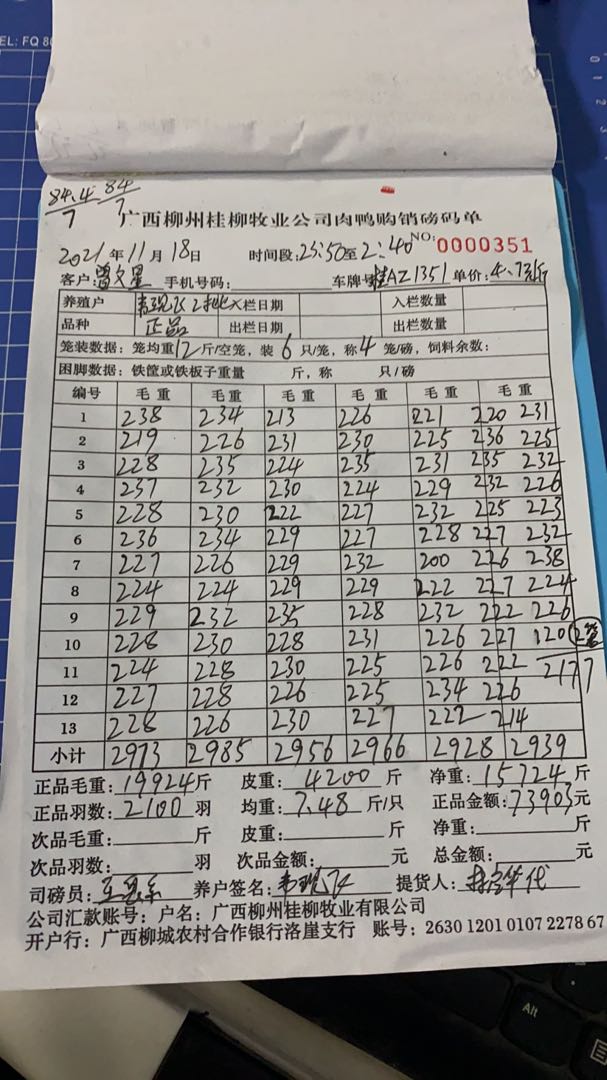 EL: FQ
84.4 84
7 7
广西柳州桂柳牧业公司肉鸭购销磅码单
2021年11月18日 时间段:23:50至2:40 NO: 0000351
客户: 曾文星 手机号码: 车牌号桂AZ1351 单价:4.7元/斤
养殖户 2批 入栏日期 入栏数量
品种 正品 出栏日期 出栏数量
笼装数据:笼均重12斤/空笼,装6只/笼,称4笼/磅,饲料余数:
困脚数据:铁筐或铁板子重量 斤,称 只/磅
编号 毛重 毛重 毛重 毛重 毛重 毛重
1 238 234 213 226 221 220 231
2 219 226 231 230 225 236 225
3 228 235 224 235 231 235 232
4 237 232 230 224 229 232 226
5 228 230 222 227 232 225 223
6 236 234 229 227 228 227 232
7 227 226 229 232 200 226 238
8 224 224 229 229 222 227 224
9 229 232 235 228 232 222 226
10 228 230 228 231 226 227 120 2笼
11 224 228 230 225 226 222 2177
12 227 228 226 225 234 226
13 228 226 230 227 222 214
小计 2973 2985 2956 2966 2928 2939
正品毛重:19924斤 皮重:4200斤 净重:15724斤
正品羽数:2100羽 均重:7.48斤/只 正品金额:73903元
次品毛重: 斤 皮重: 斤 净重: 斤
次品羽数: 羽 次品金额: 元 总金额: 元
司磅员: 养户签名: 提货人:
公司汇款账号:户名:广西柳州桂柳牧业有限公司
开户行:广西柳城农村合作银行洛崖支行 账号:2630 1201 0107 2278 67
Alt